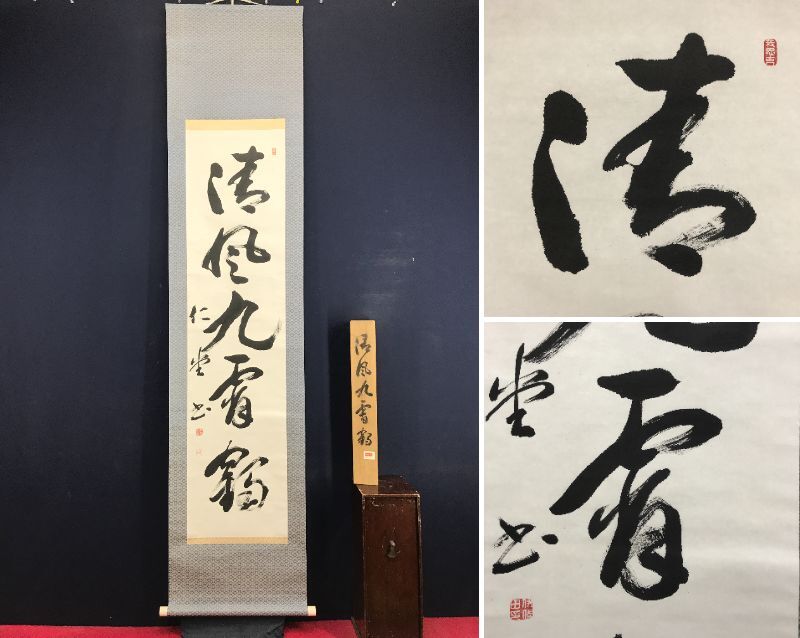 清風九霄鶴
仁堂書
清風九霄鶴
清
霄
堂書